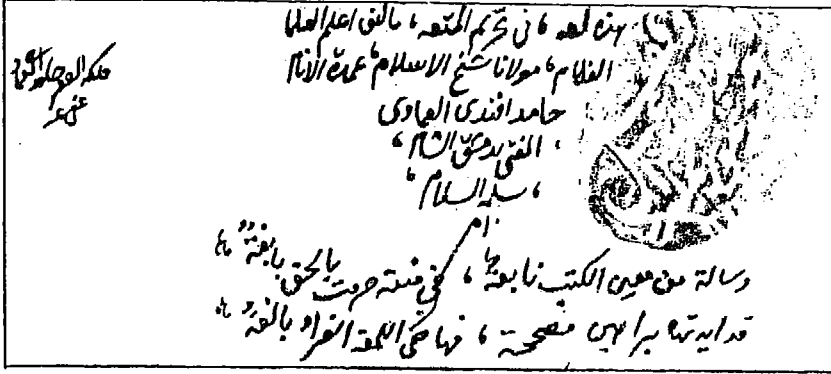 هذه لمعه، في تحريم المتعه، تأليف اعلم العلما
مولانا شيخ الاسلام، عمدة الانام
حامد افندي العمادي
المفتي بدمشق الشام،
، سلمه السلام،
رسالة من معين الكتب نابعة، في متعة حرمت بالحق
قد ايدتها براهين مصححة، فها هي اللمعة الغراء
ملكه الفقير
عفي عنه